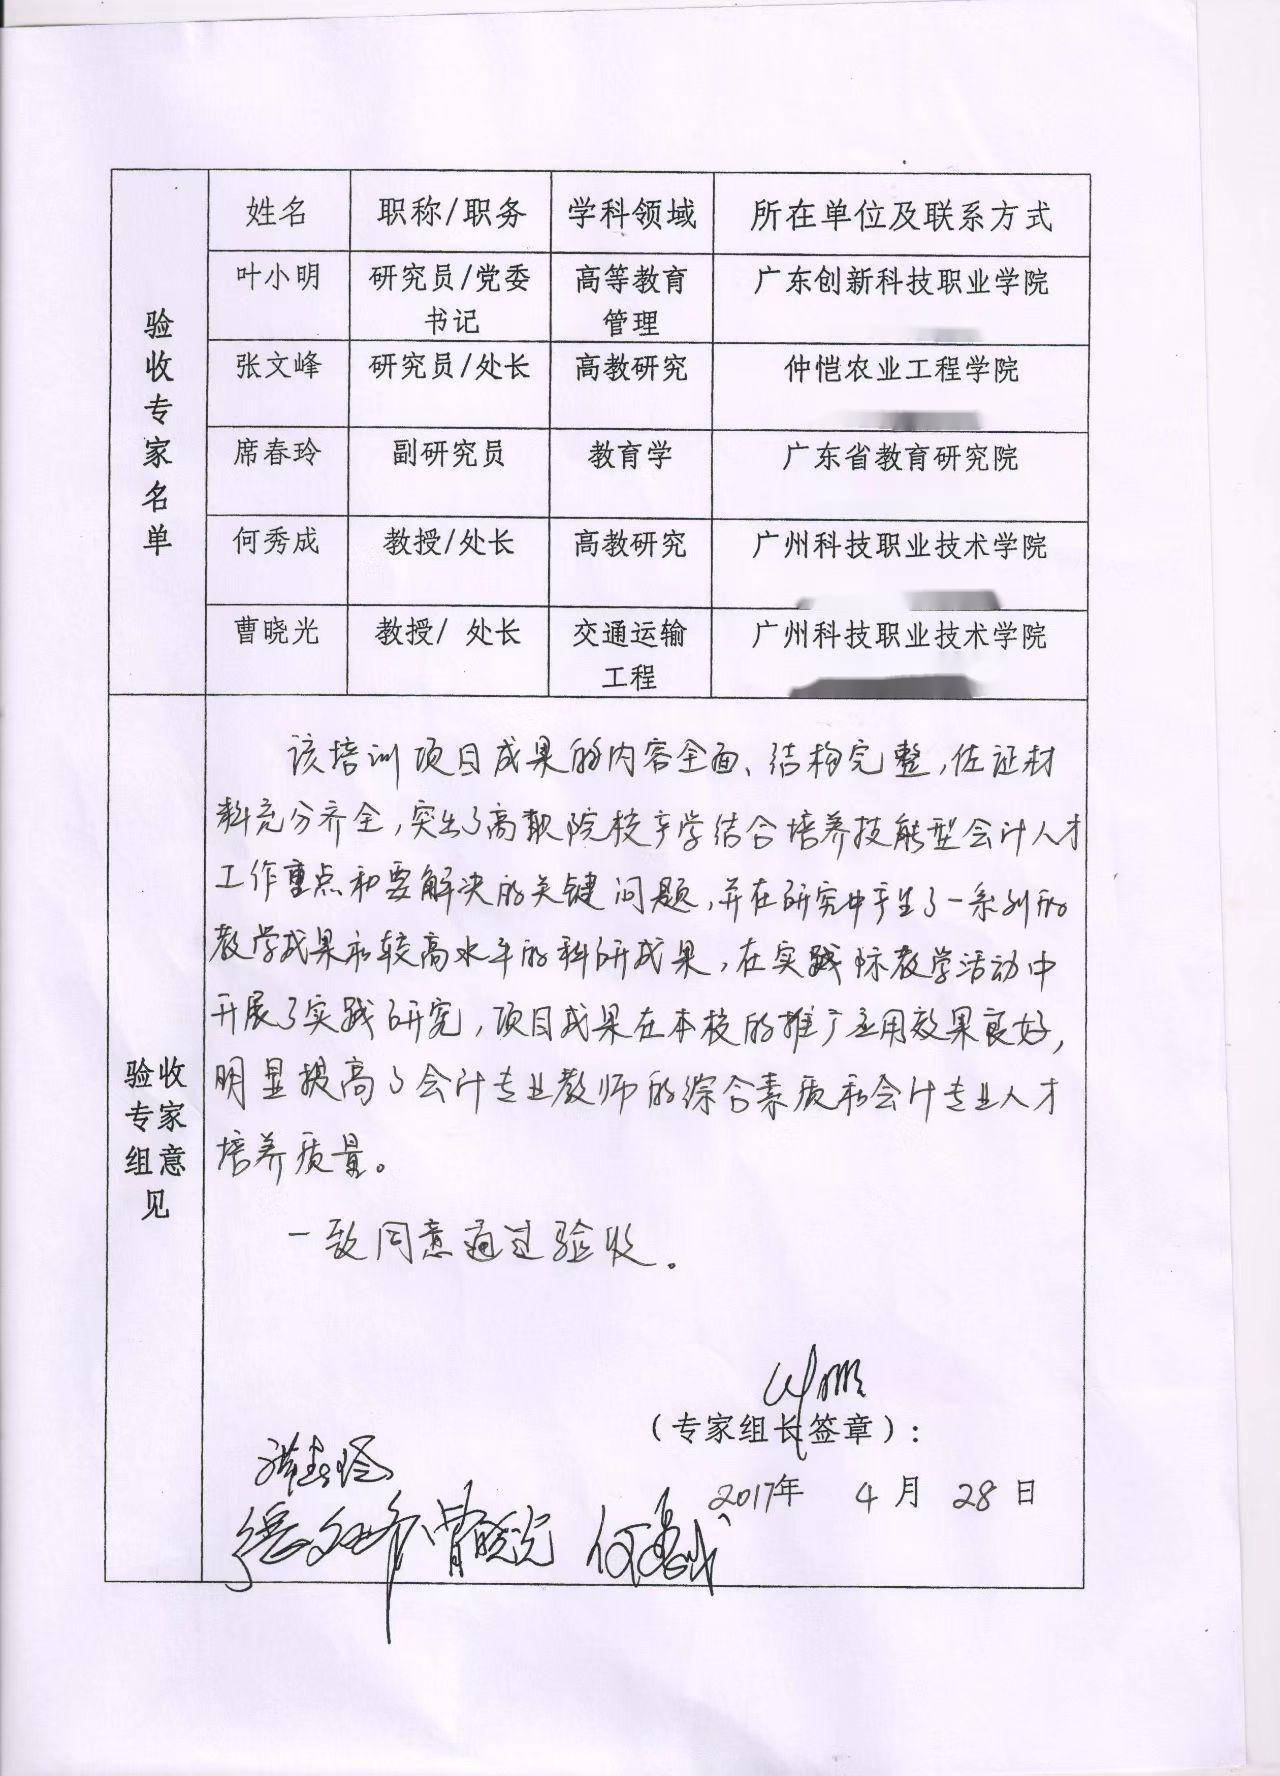 姓名 职称/职务 学科领域 所在单位及联系方式
叶小明 研究员/党委书记 高等教育管理 广东创新科技职业学院
张文峰 研究员/处长 高教研究 仲恺农业工程学院
席春玲 副研究员 教育学 广东省教育研究院
何秀成 教授/处长 高教研究 广州科技职业技术学院
曹晓光 教授/ 处长 交通运输工程 广州科技职业技术学院
验收专家名单
该培训项目成果的内容全面、结构完整,佐证材
料充分齐全,突出了高职院校产学结合培养技能型会计人才
工作重点和要解决的关键问题,并在研究中产生了一系列的
教学成果和较高水平的科研成果,在实践教学活动中
开展了实践研究,项目成果在本校的推广应用效果良好,
明显提高了会计专业教师的综合素质和会计专业人才
培养质量。
一致同意通过验收。
验收
专家
组意
见
(专家组长签章):
2017年 4月 28日
席春玲
张文峰 曹晓光 何秀成